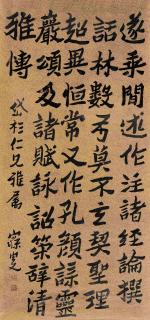 遂乘閒述作注諸經論撰
話林數弓莫不玄契聖理
超異恒常又作孔顏誄靈
巖頌及諸賦詠詔策辭清
雅傳
岱杉仁兄雅屬
寐叟